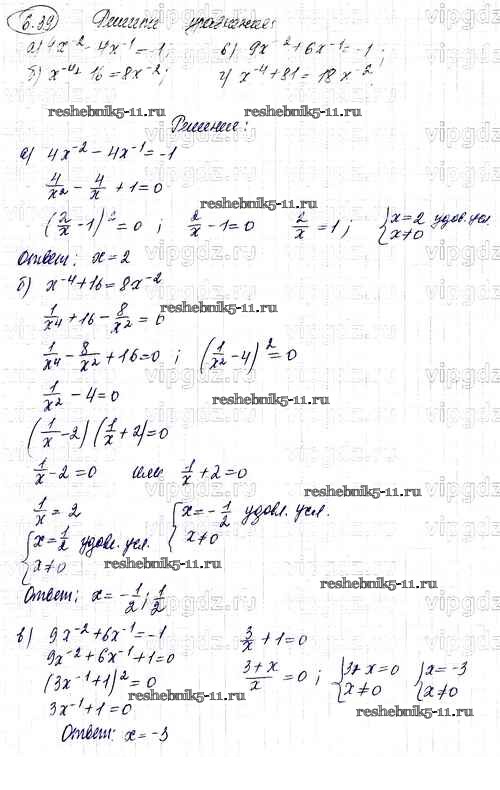 6.39 Решить уравнение:
а) 4x⁻² - 4x⁻¹ = -1; в) 9x⁻² + 6x⁻¹ = -1;
б) x⁻⁴ + 16 = 8x⁻²; г) x⁻⁴ + 81 = 18x⁻².
reshebnik5-11.ru reshebnik5-11.ru
Решение:
а) 4x⁻² - 4x⁻¹ = -1
4/x² - 4/x + 1 = 0
reshebnik5-11.ru
(2/x - 1)² = 0; 2/x - 1 = 0 2/x = 1; {x = 2 удов. усл. x ≠ 0
Ответ: x = 2
б) x⁻⁴ + 16 = 8x⁻²
reshebnik5-11.ru
1/x⁴ + 16 - 8/x² = 0
1/x⁴ - 8/x² + 16 = 0; (1/x² - 4)² = 0
1/x² - 4 = 0
reshebnik5-11.ru
(1/x - 2)(1/x + 2) = 0
1/x - 2 = 0 или 1/x + 2 = 0
reshebnik5-11.ru
1/x = 2 {x = -1/2 удовл. усл. x ≠ 0
{x = 1/2 удовл. усл. x ≠ 0
reshebnik5-11.ru
reshebnik5-11.ru
Ответ: x = -1/2; 1/2
в) 9x⁻² + 6x⁻¹ = -1 3/x + 1 = 0
9x⁻² + 6x⁻¹ + 1 = 0 (3+x)/x = 0; {3 + x = 0 x ≠ 0 {x = -3 x ≠ 0
(3x⁻¹ + 1)² = 0
3x⁻¹ + 1 = 0
reshebnik5-11.ru
Ответ: x = -3
vipgdz.ru